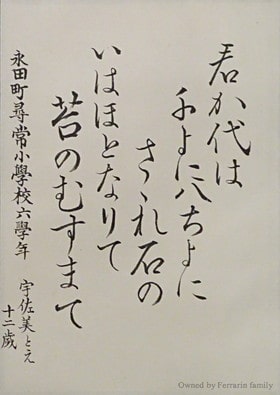 君か代は
千よに八ちよに
さゝれ石の
いはほとなりて
苔のむすまて
永田町尋常小學校六學年
宇佐美とえ
十二歲
Owned by Ferrarin family